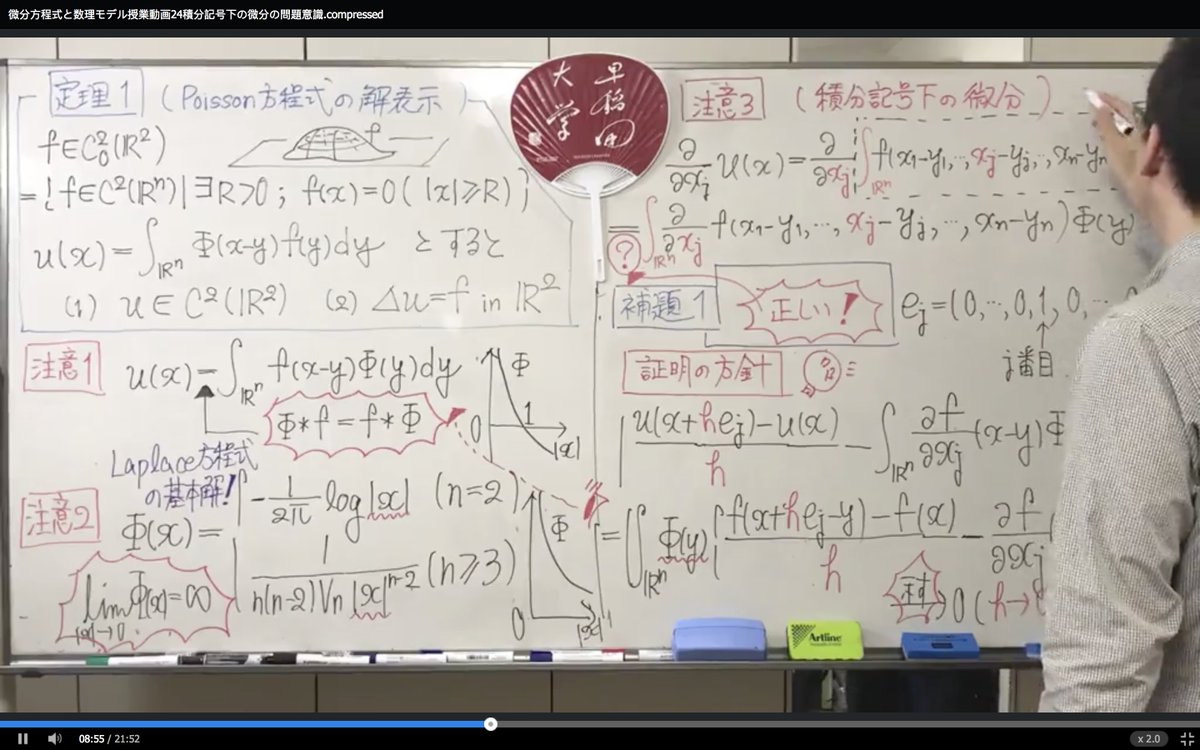 微分方程式と数理モデル授業動画24積分記号下の微分の問題意識.compressed
定理1 (Poisson方程式の解表示)
f∈C₀²(ℝ²)
={f∈C²(ℝⁿ)|∃R>0; f(x)=0(|x|≥R)}
u(x)=∫_ℝⁿ Φ(x-y)f(y)dy とすると
(1) u∈C²(ℝ²) (2) Δu=f in ℝ²
注意1 u(x)=∫_ℝⁿ f(x-y)Φ(y)dy
Φ*f=f*Φ
Φ
0
1
|x|
Laplace方程式
の基本解!
注意2
Φ(x)=
-1/2π log|x| (n=2)
1/n(n-2)Vn|x|ⁿ⁻² (n≥3)
lim Φ(x)=∞
|x|→0
Φ
0
|x|
早稲田
大学
注意3 (積分記号下の微分)
∂/∂xj u(x)=∂/∂xj ∫_ℝⁿ f(x₁-y₁,…,xj-yj,…,xn-yn
=∫_ℝⁿ ∂/∂xj f(x₁-y₁,…,xj-yj,…,xn-yn)Φ(y)
?
補題1
正しい!
ej=(0,…,0,1,0,…
↑
j番目
証明の方針
u(x+hej)-u(x)/h - ∫_ℝⁿ ∂f/∂xj (x-y)Φ
=∫_ℝⁿ Φ(y){f(x+hej-y)-f(x)/h - ∂f/∂xj
→0(h→
Artline
08:55 / 21:52
x 2.0